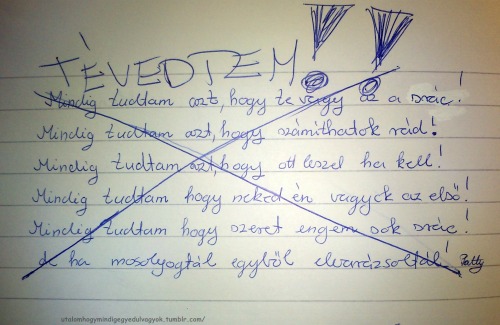 TÉVEDTEM!!
Mindig tudtam azt, hogy te vagy az a srác!
Mindig tudtam azt, hogy számíthatok rád!
Mindig tudtam azt, hogy ott leszel ha kell!
Mindig tudtam hogy neked én vagyok az első!
Mindig tudtam hogy szeret engem sok srác!
de ha mosolyogtál egyből elvarázsoltál! Patty
utalomhogymindigegyedulvagyok.tumblr.com/